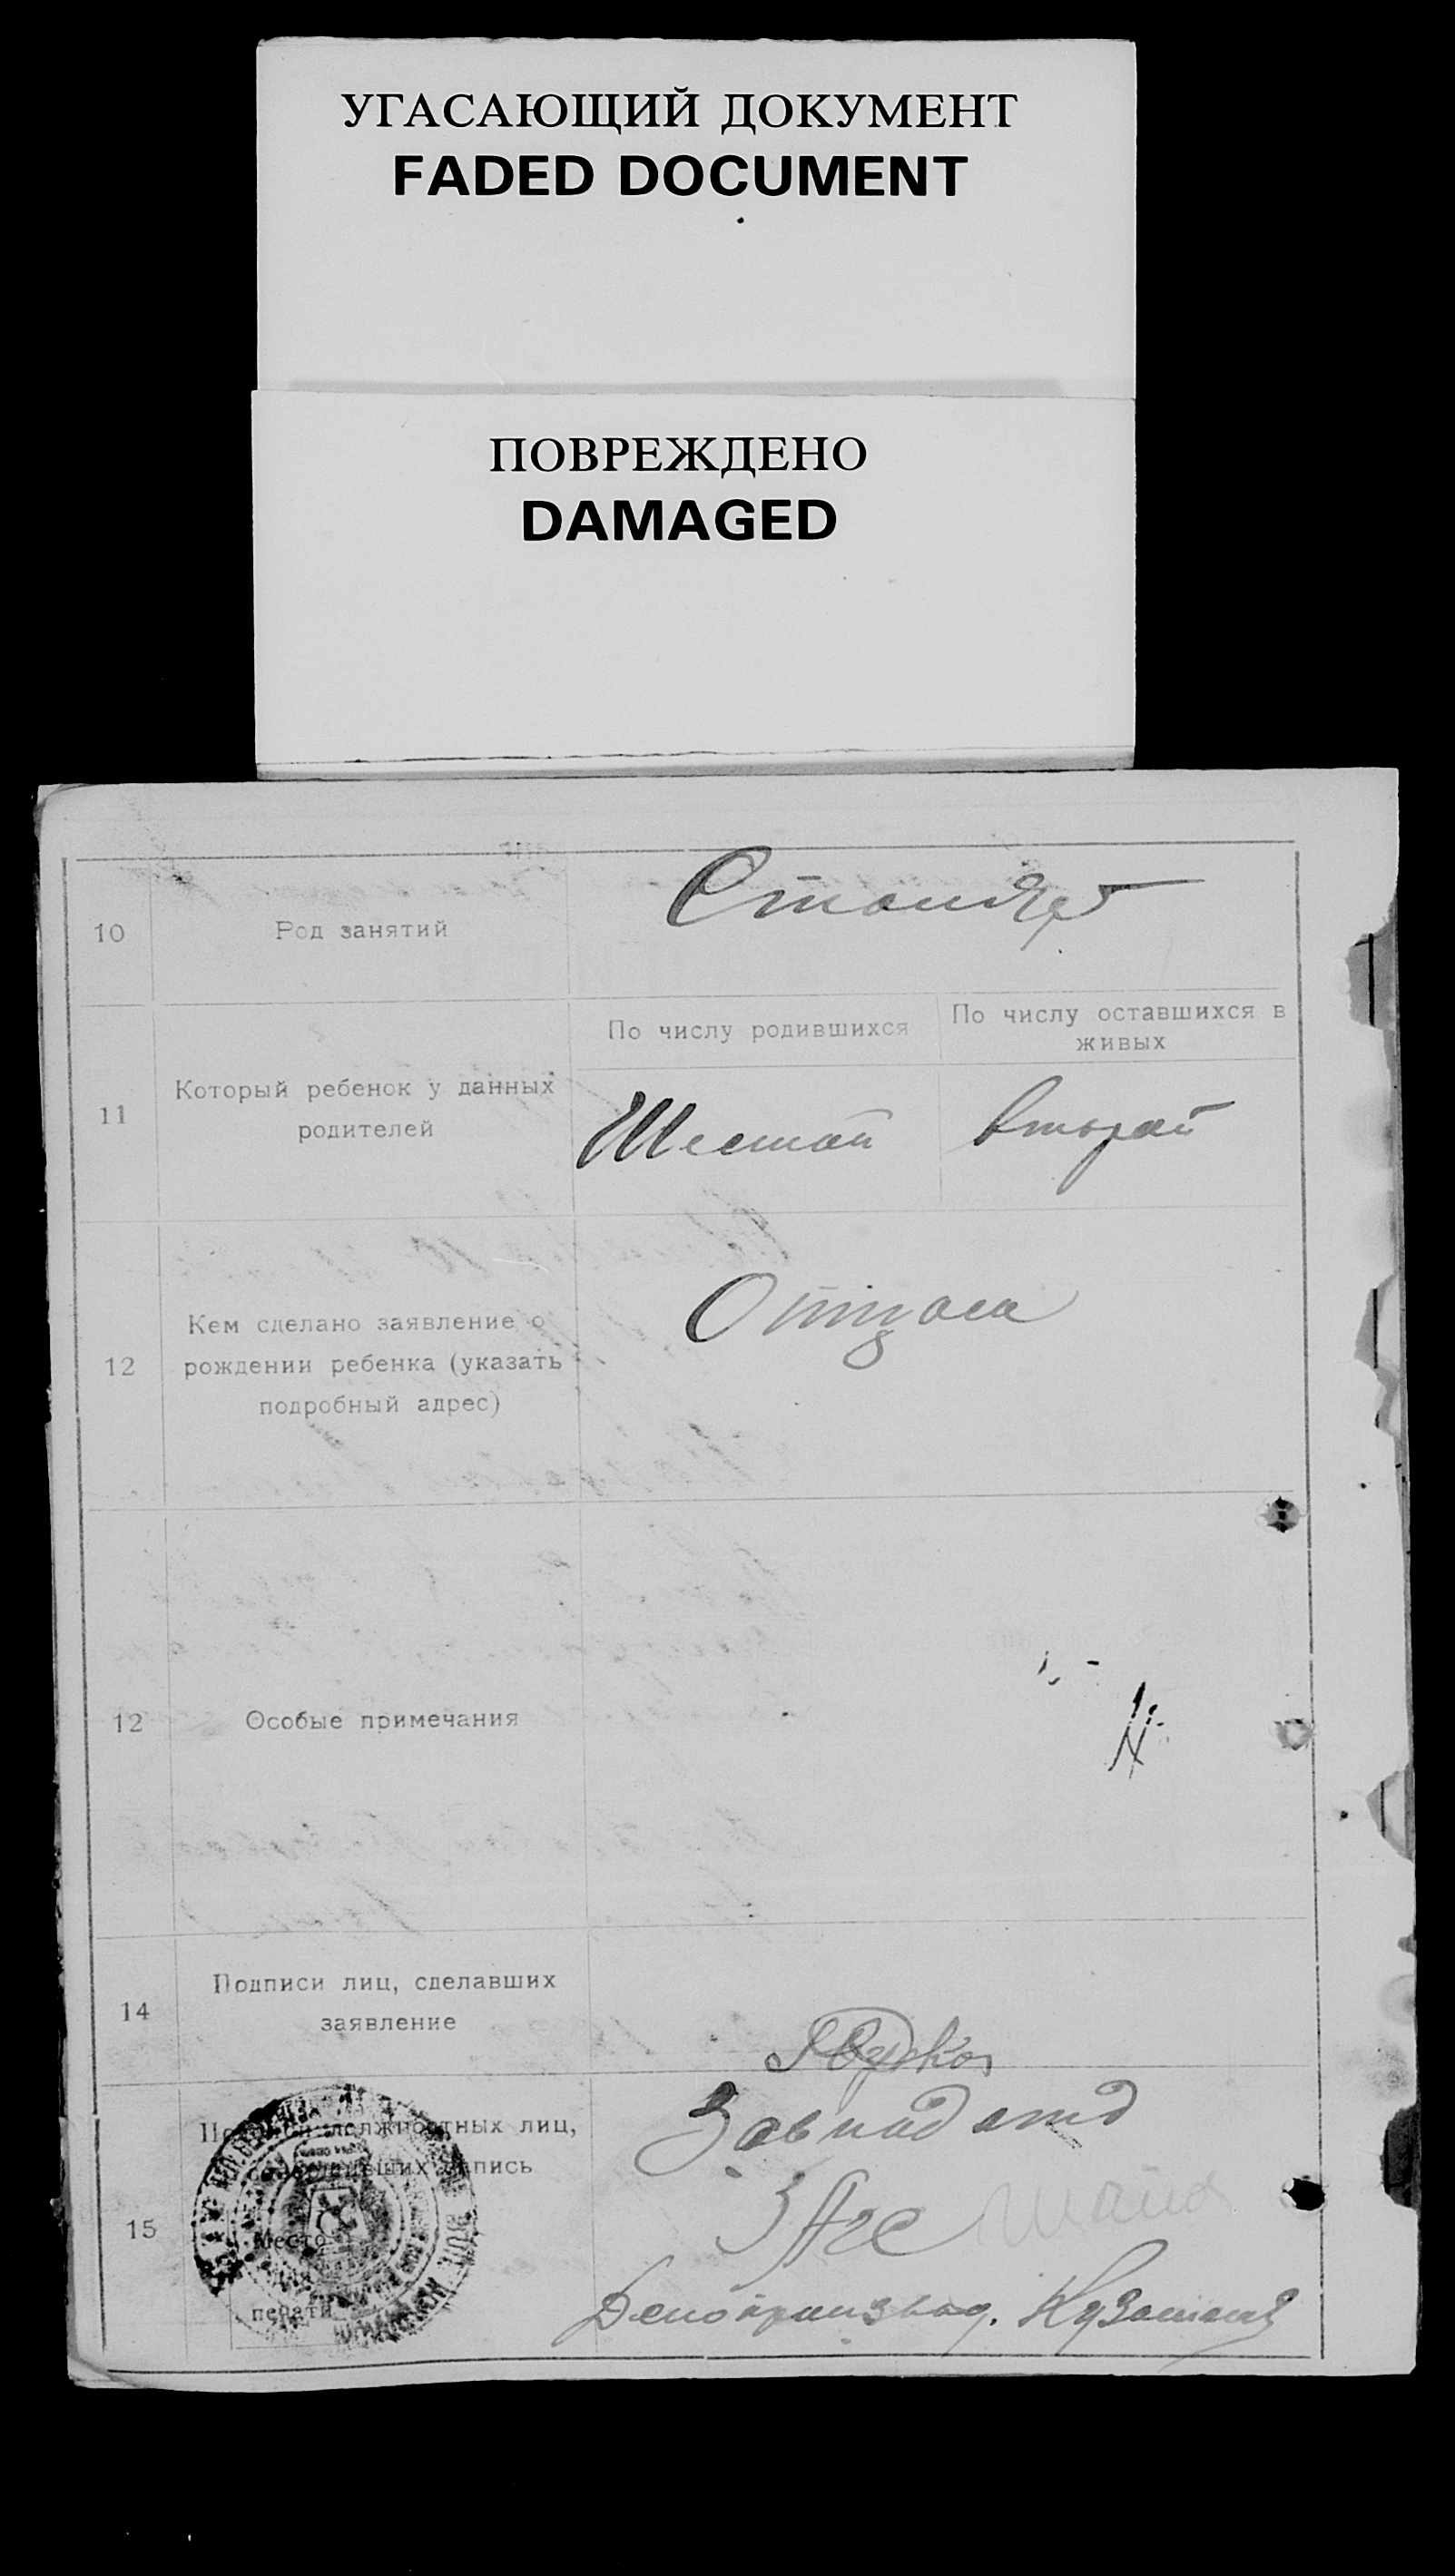 УГАСАЮЩИЙ ДОКУМЕНТ
FADED DOCUMENT
ПОВРЕЖДЕНО
DAMAGED
10
Род занятий
11
Который ребенок у данных
родителей
По числу родившихся
По числу оставшихся в
живых
Шестой
Второй
12
Кем сделано заявление о
рождении ребенка (указать
подробный адрес)
Отцом
12
Особые примечания
14
Подписи лиц, сделавших
заявление
15
должностных лиц,
запись
Место
для
печати
Зав под отд
Загс
Делопроизвод.